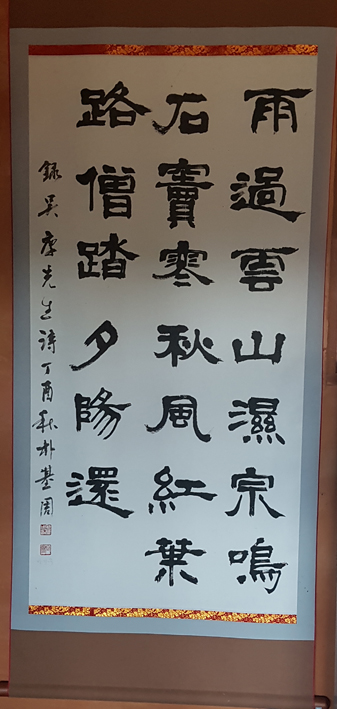 雨過雲山濕泉鳴
石竇寒秋風紅葉
路僧踏夕陽還
録吳慶先生詩丁酉秋朴基周